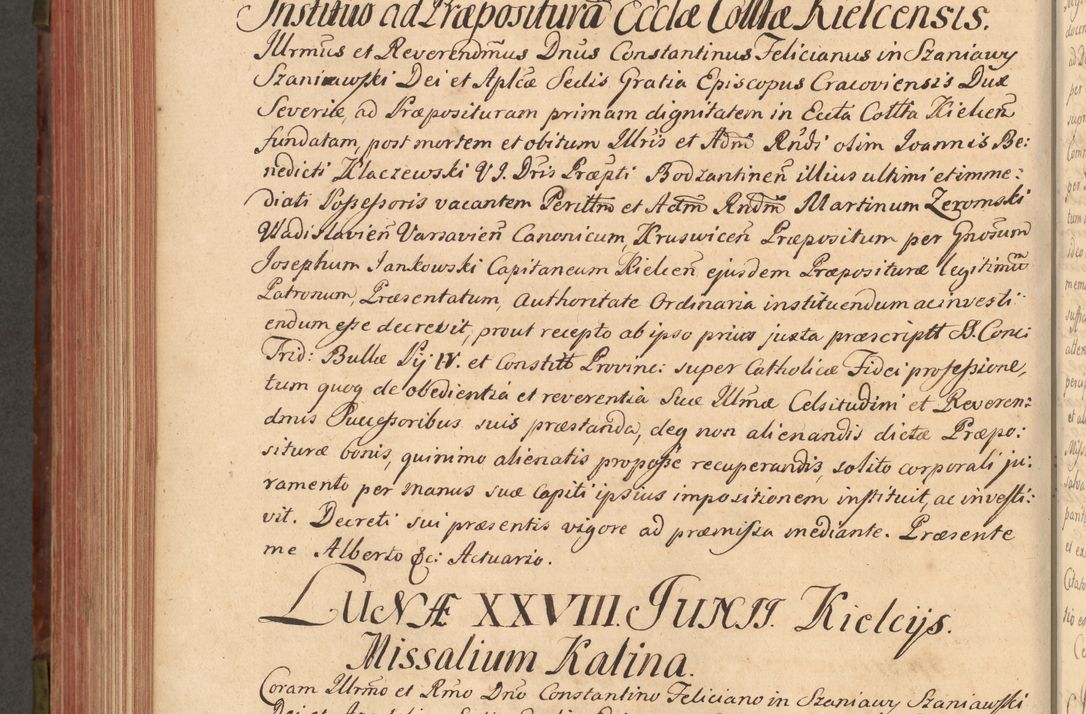 Institutio ad Præpositurā Ecclæ Collñæ Kielcensis.
Illrmus et Reverendmus Dnus Constantinus Felicianus in Szaniawy
Szaniawski Dei et Aplcæ Sedis Gratia Episcopus Cracoviensis Dux
Severiæ, ad Præposituram primam dignitatem in Eccla Collta Kielceñ
fundatam, post mortem et obitum Illris et Adm̃ Rñdi olim Joannis Be:
nedicti Klaczewski V J. Dris Præpti Bodzantineñ illius ultimi et imme:
diati Possessoris vacantem Perillm̃ et Adm̃ Rndm̃ Martinum Zeromski
Wladislavieñ Varsavieñ Canonicum, Kruswiceñ Præpositum per Gnosum
Josephum Jankowski Capitaneum Kielceñ ejusdem Præposituræ legitimum
Patronum, Præsentatum, Authoritate Ordinaria instituendum ac investi:
endum esse decrevit, prout recepto ab ipso prius juxta præscriptt S. Conc:
Trid: Bullæ Pij IV. et Constitt Provinc: super Catholicæ Fidei professione,
tum quoq de obedientia et reverentia Suæ Illmæ Celsitudini et Reveren:
dmis Successoribus suis præstanda, deq non alienandis dictæ Præpo:
situræ bonis, quinimo alienatis propossé recuperandis, solito corporali ju:
ramento per manus suæ Capiti ipsius impositionem instituit, ac investi:
vit. Decreti sui præsentis vigore ad præmissa mediante. Præsente
me Alberto &c: Actuario.
LUNÆ XXVIII. JUNIJ. Kielcijs.
Missalium Katina.
Coram Illrmo et Rmo Dno Constantino Feliciano in Szaniawy Szaniawski